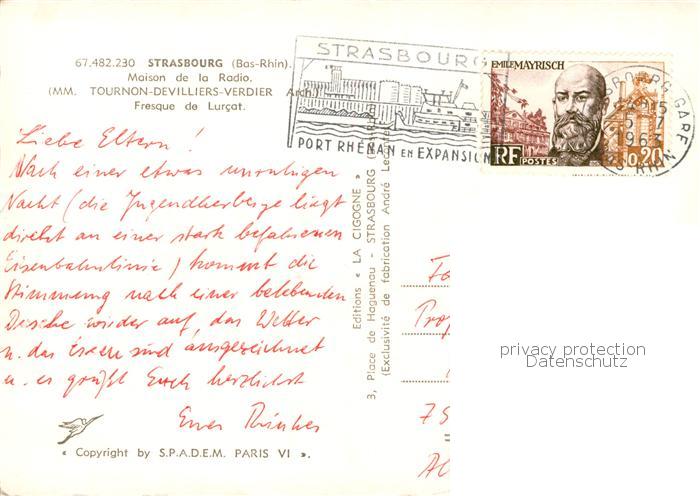 67.482.230 STRASBOURG (Bas-Rhin).
Maison de la Radio.
(MM. TOURNON-DEVILLIERS-VERDIER Arch.)
Fresque de Lurçat.
STRASBOURG
PORT RHÉNAN EN EXPANSION
EMILE MAYRISCH
RF POSTES 0,20
STRASBOURG GARE
1963
RHIN
Liebe Eltern!
Nach einer etwas unruhigen
Nacht (die Jugendherberge liegt
direkt an einer stark befahrenen
Eisenbahnlinie) kommt die
Stimmung nach einer belebenden
Dusche wieder auf, das Wetter
u. das Essen sind ausgezeichnet
u. es grüßt Euch herzlichst
Euer
Editions « LA CIGOGNE »
3, Place de Haguenau - STRASBOURG (Bas-Rhin)
(Exclusivité de fabrication André Leconte)
« Copyright by S.P.A.D.E.M. PARIS VI ».
privacy protection
Datenschutz